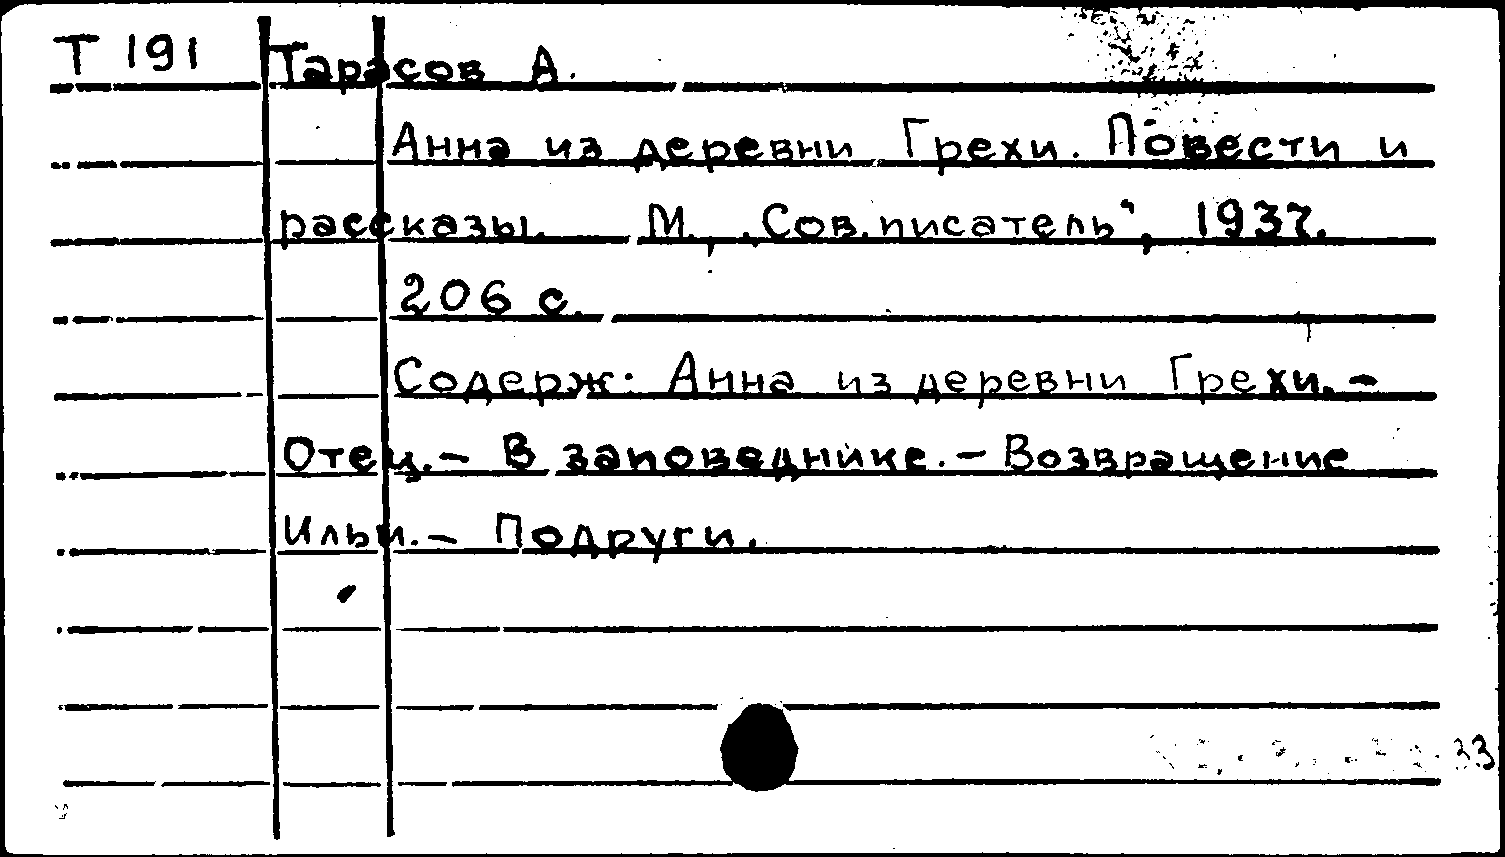 Т 191 Тарасов А.
Анна из деревни Грехи. Повести и
рассказы. М., „Сов. писатель“, 1937.
206 с.
Содерж: Анна из деревни Грехи. –
Отец. – В заповеднике. – Возвращение
Ильи. – Подруги.
33